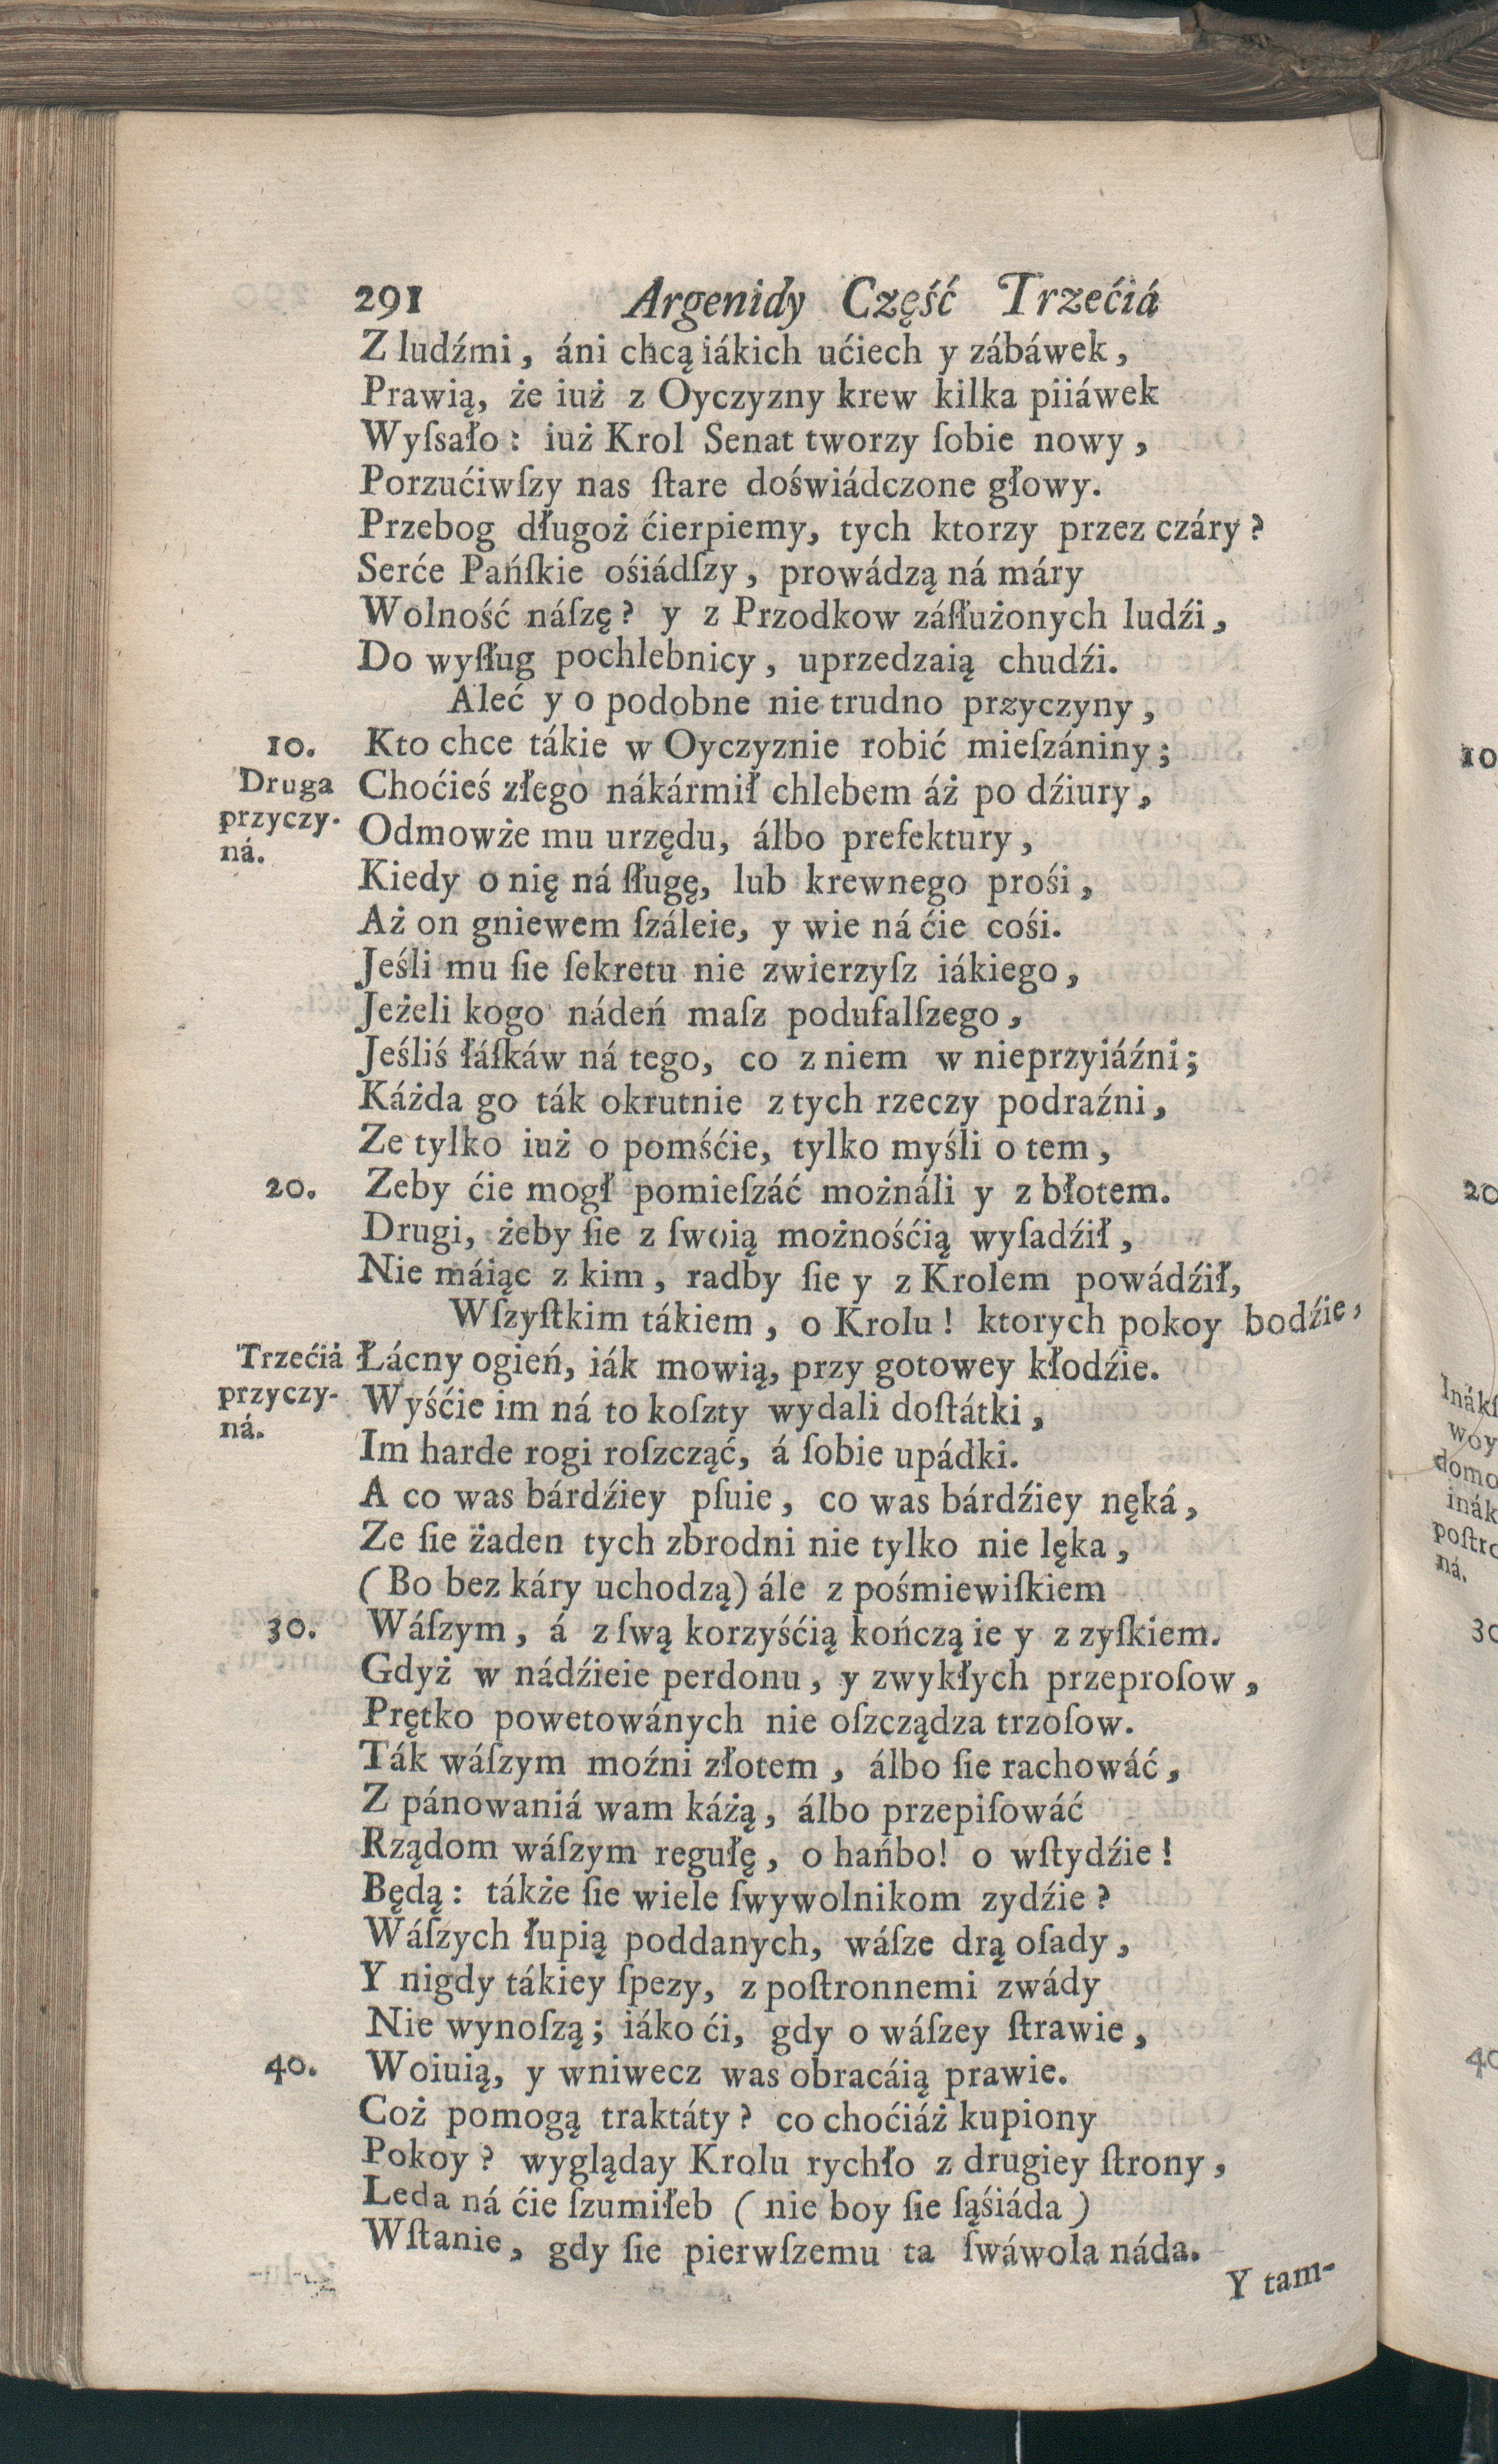 291 Argenidy Część Trzećiá
Z ludźmi, áni chcą iákich ućiech y zábáwek,
Prawią, że iuż z Oyczyzny krew kilka piiáwek
Wyſsało: iuż Krol Senat tworzy ſobie nowy,
Porzućiwſzy nas ſtare doświádczone głowy.
Przebog długoż ćierpiemy, tych ktorzy przez czáry?
Serće Pańſkie ośiádſzy, prowádzą ná máry
Wolność náſzę? y z Przodkow záſłużonych ludźi,
Do wyſług pochlebnicy, uprzedzaią chudźi.
Aleć y o podobne nie trudno przyczyny,
10. Kto chce tákie w Oyczyznie robić mieſzániny;
Druga
przyczy-
ná.
Choćieś złego nákármił chlebem áż po dźiury,
Odmowże mu urzędu, álbo prefektury,
Kiedy o nię ná ſługę, lub krewnego prośi,
Aż on gniewem ſzáleie, y wie ná ćie cośi.
Jeśli mu ſie ſekretu nie zwierzyſz iákiego,
Jeżeli kogo nádeń maſz podufalſzego,
Jeśliś łáſkáw ná tego, co z niem w nieprzyiáźni;
Káżda go ták okrutnie z tych rzeczy podraźni,
Ze tylko iuż o pomśćie, tylko myśli o tem,
20. Zeby ćie mogł pomieſzáć możnáli y z błotem.
Drugi, żeby ſie z ſwoią możnośćią wyſadźił,
Nie máiąc z kim, radby ſie y z Krolem powádźił,
Wſzyſtkim tákiem, o Krolu! ktorych pokoy bodźie,
Trzećiá
przyczy-
ná.
Łácny ogień, iák mowią, przy gotowey kłodźie.
Wyśćie im ná to koſzty wydali doſtátki,
Im harde rogi roſzcząć, á ſobie upádki.
A co was bárdźiey pſuie, co was bárdźiey nęká,
Ze ſie żaden tych zbrodni nie tylko nie lęka,
(Bo bez káry uchodzą) ále z pośmiewiſkiem
30. Wáſzym, á z ſwą korzyśćią kończą ie y z zyſkiem.
Gdyż w nádźieie perdonu, y zwykłych przeproſow,
Prętko powetowánych nie oſzcządza trzoſow.
Ták wáſzym moźni złotem, álbo ſie rachowáć,
Z pánowaniá wam káżą, álbo przepiſowáć
Rządom wáſzym regułę, o hańbo! o wſtydźie!
Będą: tákże ſie wiele ſwywolnikom zydźie?
Wáſzych łupią poddanych, wáſze drą oſady,
Y nigdy tákiey ſpezy, z poſtronnemi zwády
Nie wynoſzą; iáko ći, gdy o wáſzey ſtrawie,
40. Woiuią, y wniwecz was obracáią prawie.
Coż pomogą traktáty? co choćiáż kupiony
Pokoy? wygląday Krolu rychło z drugiey ſtrony,
Leda ná ćie ſzumiłeb (nie boy ſie ſąśiáda)
Wſtanie, gdy ſie pierwſzemu ta ſwáwola náda.
Y tam-
10
20
Inákſ
woy
domo
inák
poſtro
ná.
30
40